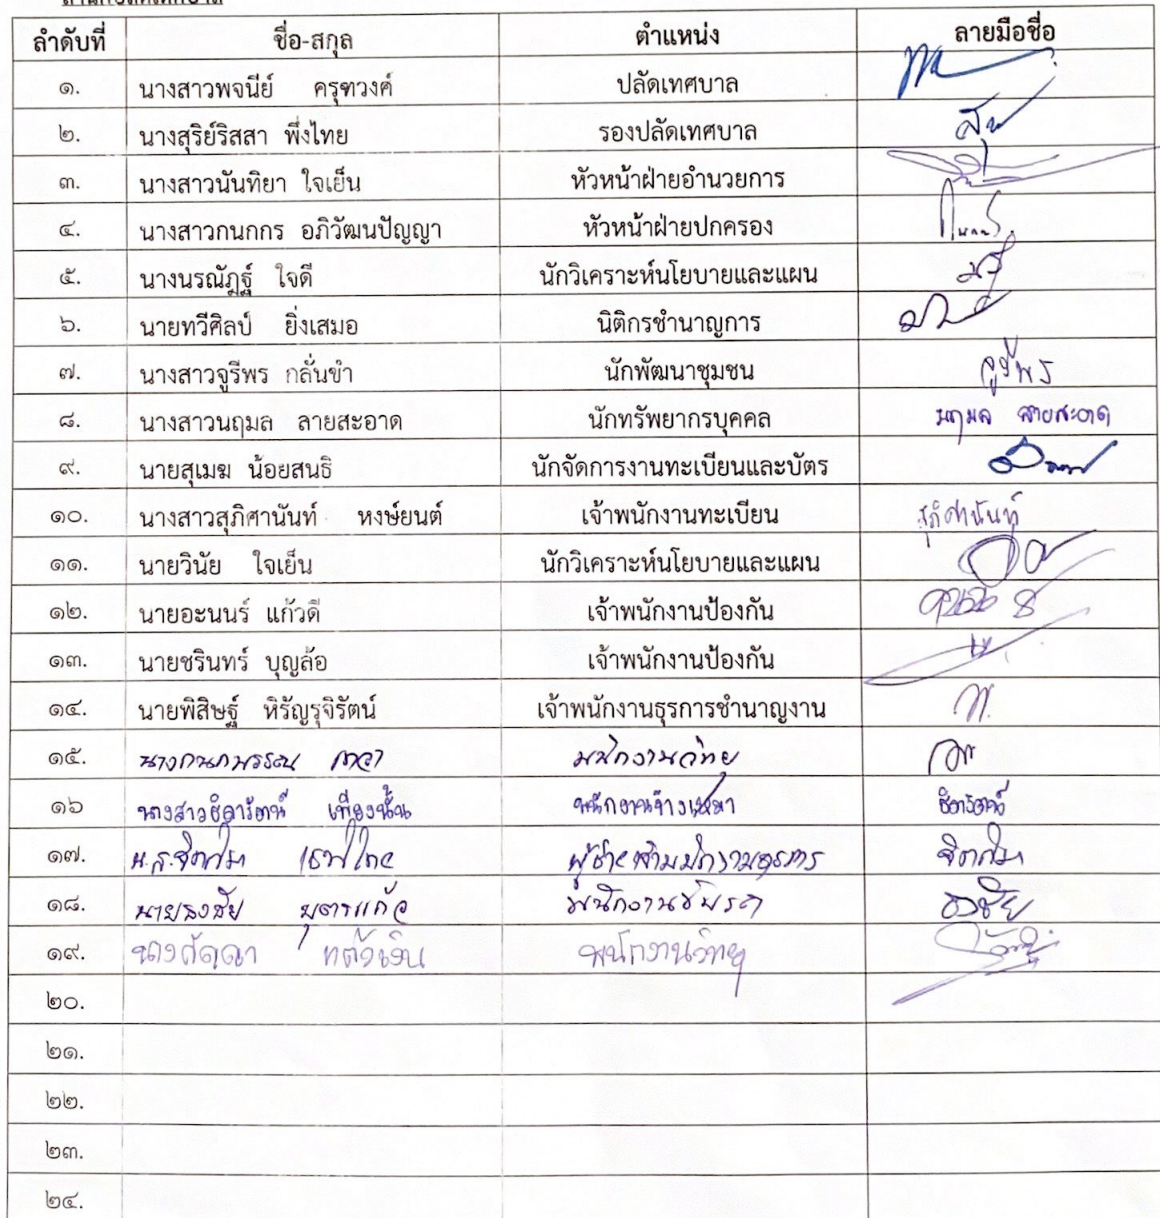 ลำดับที่ ชื่อ-สกุล ตำแหน่ง ลายมือชื่อ
๑. นางสาวพจนีย์ ครุฑวงค์ ปลัดเทศบาล
๒. นางสุริย์ริสสา พึ่งไทย รองปลัดเทศบาล
๓. นางสาวนันทิยา ใจเย็น หัวหน้าฝ่ายอำนวยการ
๔. นางสาวกนกกร อภิวัฒนปัญญา หัวหน้าฝ่ายปกครอง
๕. นางนรณัฏฐ์ ใจดี นักวิเคราะห์นโยบายและแผน
๖. นายทวีศิลป์ ยิ่งเสมอ นิติกรชำนาญการ
๗. นางสาวจูรีพร กลั่นขำ นักพัฒนาชุมชน จูรีพร
๘. นางสาวนฤมล ลายสะอาด นักทรัพยากรบุคคล นฤมล ลายสะอาด
๙. นายสุเมฆ น้อยสนธิ นักจัดการงานทะเบียนและบัตร
๑๐. นางสาวสุภิศานันท์ หงษ์ยนต์ เจ้าพนักงานทะเบียน สุภิศานันท์
๑๑. นายวินัย ใจเย็น นักวิเคราะห์นโยบายและแผน
๑๒. นายอะนนร์ แก้วดี เจ้าพนักงานป้องกัน
๑๓. นายชรินทร์ บุญล้อ เจ้าพนักงานป้องกัน
๑๔. นายพิสิษฐ์ หิรัญรุจิรัตน์ เจ้าพนักงานธุรการชำนาญงาน
๑๕. นางกนกพรรณ พนักงานวิทยุ
๑๖ นางสาวธิดารัตน์ เที่ยงนั้น พนักงานจ้างเหมา ธิดารัตน์
๑๗. น.ส. ผู้ช่วยเจ้าพนักงานธุรการ
๑๘. นายธงชัย บุตรแก้ว ธงชัย
๑๙. นาง พนักงานวิทยุ
๒๐.
๒๑.
๒๒.
๒๓.
๒๔.